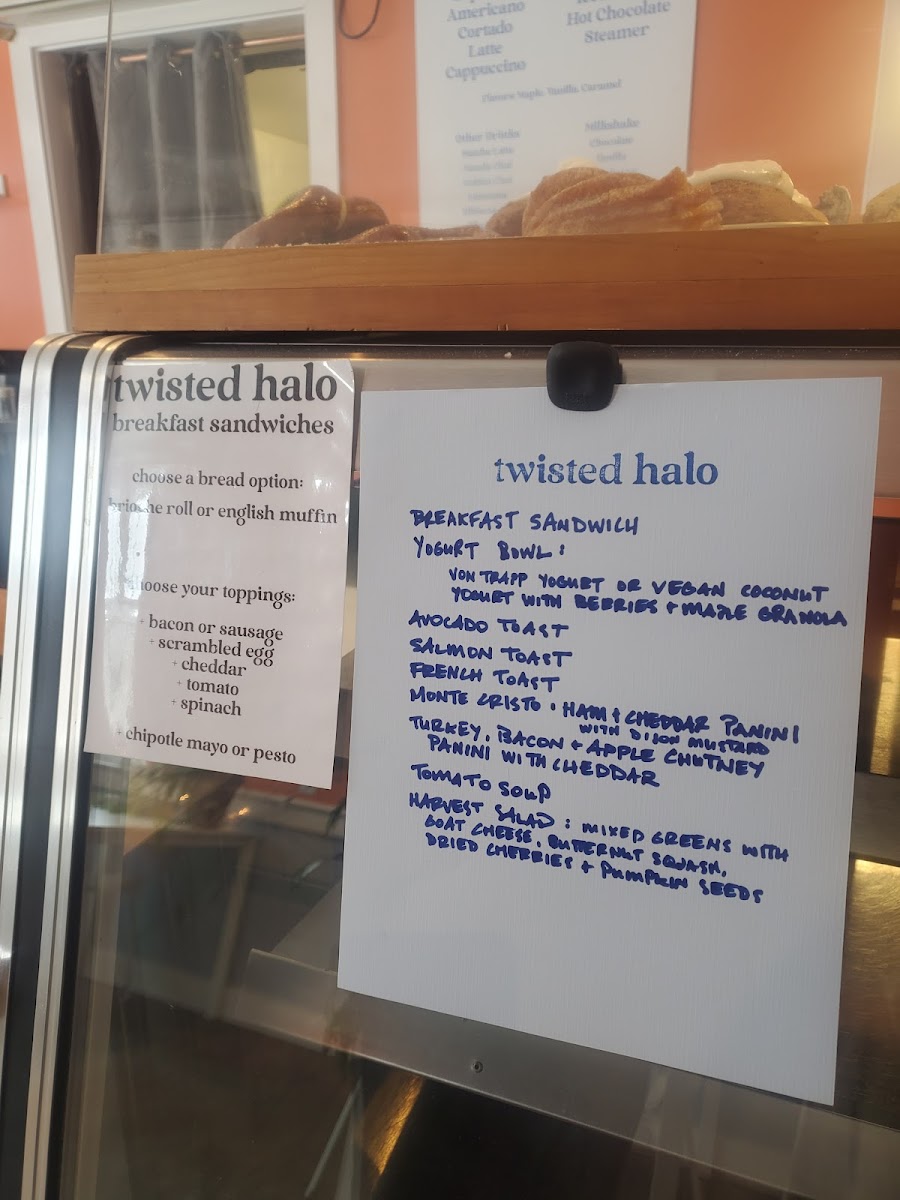 Americano
Cortado
Latte
Cappuccino
Hot Chocolate
Steamer
Flavors: Maple, Vanilla, Caramel
Other Drinks
Milkshake
Chocolate
Vanilla
twisted halo
breakfast sandwiches
choose a bread option:
brioche roll or english muffin
choose your toppings:
+ bacon or sausage
+ scrambled egg
+ cheddar
+ tomato
+ spinach
+ chipotle mayo or pesto
twisted halo
BREAKFAST SANDWICH
YOGURT BOWL:
VON TRAPP YOGURT OR VEGAN COCONUT
YOGURT WITH BERRIES + MAPLE GRANOLA
AVOCADO TOAST
SALMON TOAST
FRENCH TOAST
MONTE CRISTO · HAM + CHEDDAR PANINI
WITH DIJON MUSTARD
TURKEY, BACON + APPLE CHUTNEY
PANINI WITH CHEDDAR
TOMATO SOUP
HARVEST SALAD: MIXED GREENS WITH
GOAT CHEESE, BUTTERNUT SQUASH,
DRIED CHERRIES + PUMPKIN SEEDS